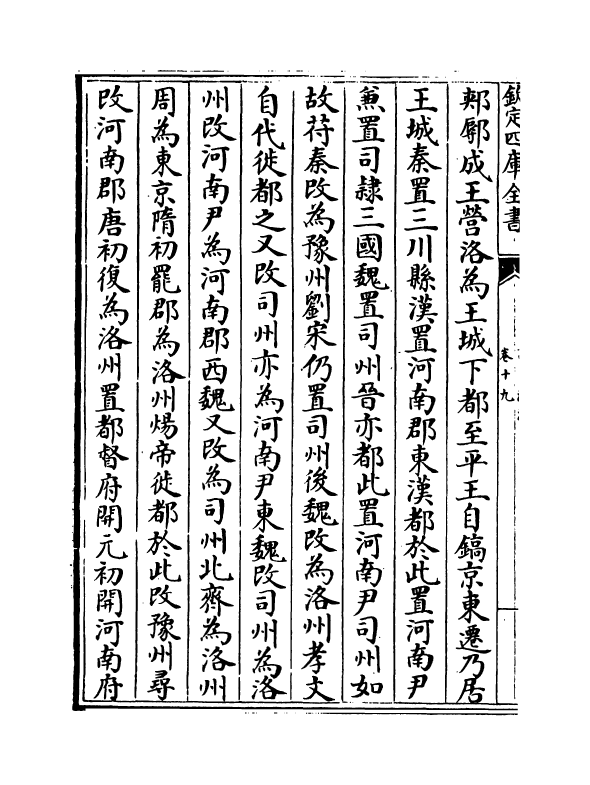 欽定四庫全書
卷十九
郟鄏成王營洛為王城下都至平王自鎬京東遷乃居
王城秦置三川縣漢置河南郡東漢都於此置河南尹
兼置司隷三國魏置司州晉亦都此置河南尹司州如
故苻秦改為豫州劉宋仍置司州後魏改為洛州孝文
自代徙都之又改司州亦為河南尹東魏改司州為洛
州改河南尹為河南郡西魏又改為司州北齊為洛州
周為東京隋初罷郡為洛州煬帝徙都於此改豫州尋
改河南郡唐初復為洛州置都督府開元初開河南府